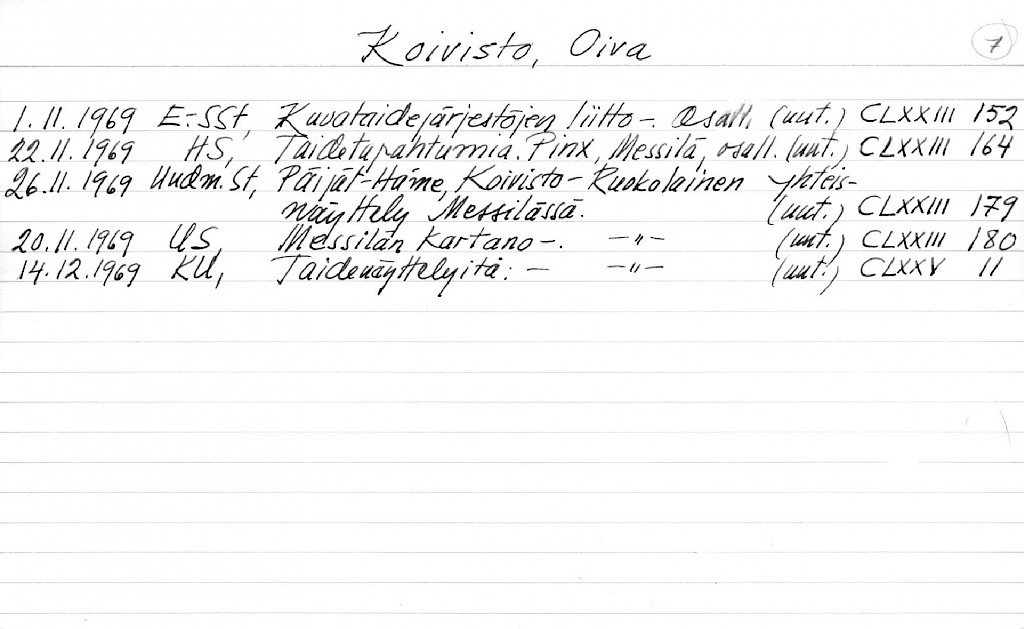 Koivisto, Oiva 7
1.11.1969 E:-SSt, Kuvataidejärjestöjen liitto -. Osall. (uut.) CLXXIII 152
22.11.1969 HS, Taidetapahtumia. Pinx, Messilä, osall. (uut.) CLXXIII 164
26.11.1969 Uudm.St, Päijät-Häme, Koivisto-Ruokolainen yhteis-
näyttely Messilässä. (uut.) CLXXIII 179
20.11.1969 US, Messilän Kartano -. -"- (uut.) CLXXIII 180
14.12.1969 KU, Taidenäyttelyitä: - -"- (uut.) CLXXV 11